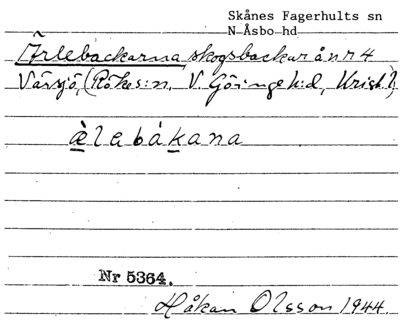 Skånes Fagerhults sn
N Åsbo hd
Ärlebackarna skogsbackar å nr 4
Värsjö, (Röke s:n, V. Göinge h:d, Krist.l.)
àlabákana
Nr 5364.
Håkan Olsson 1944.